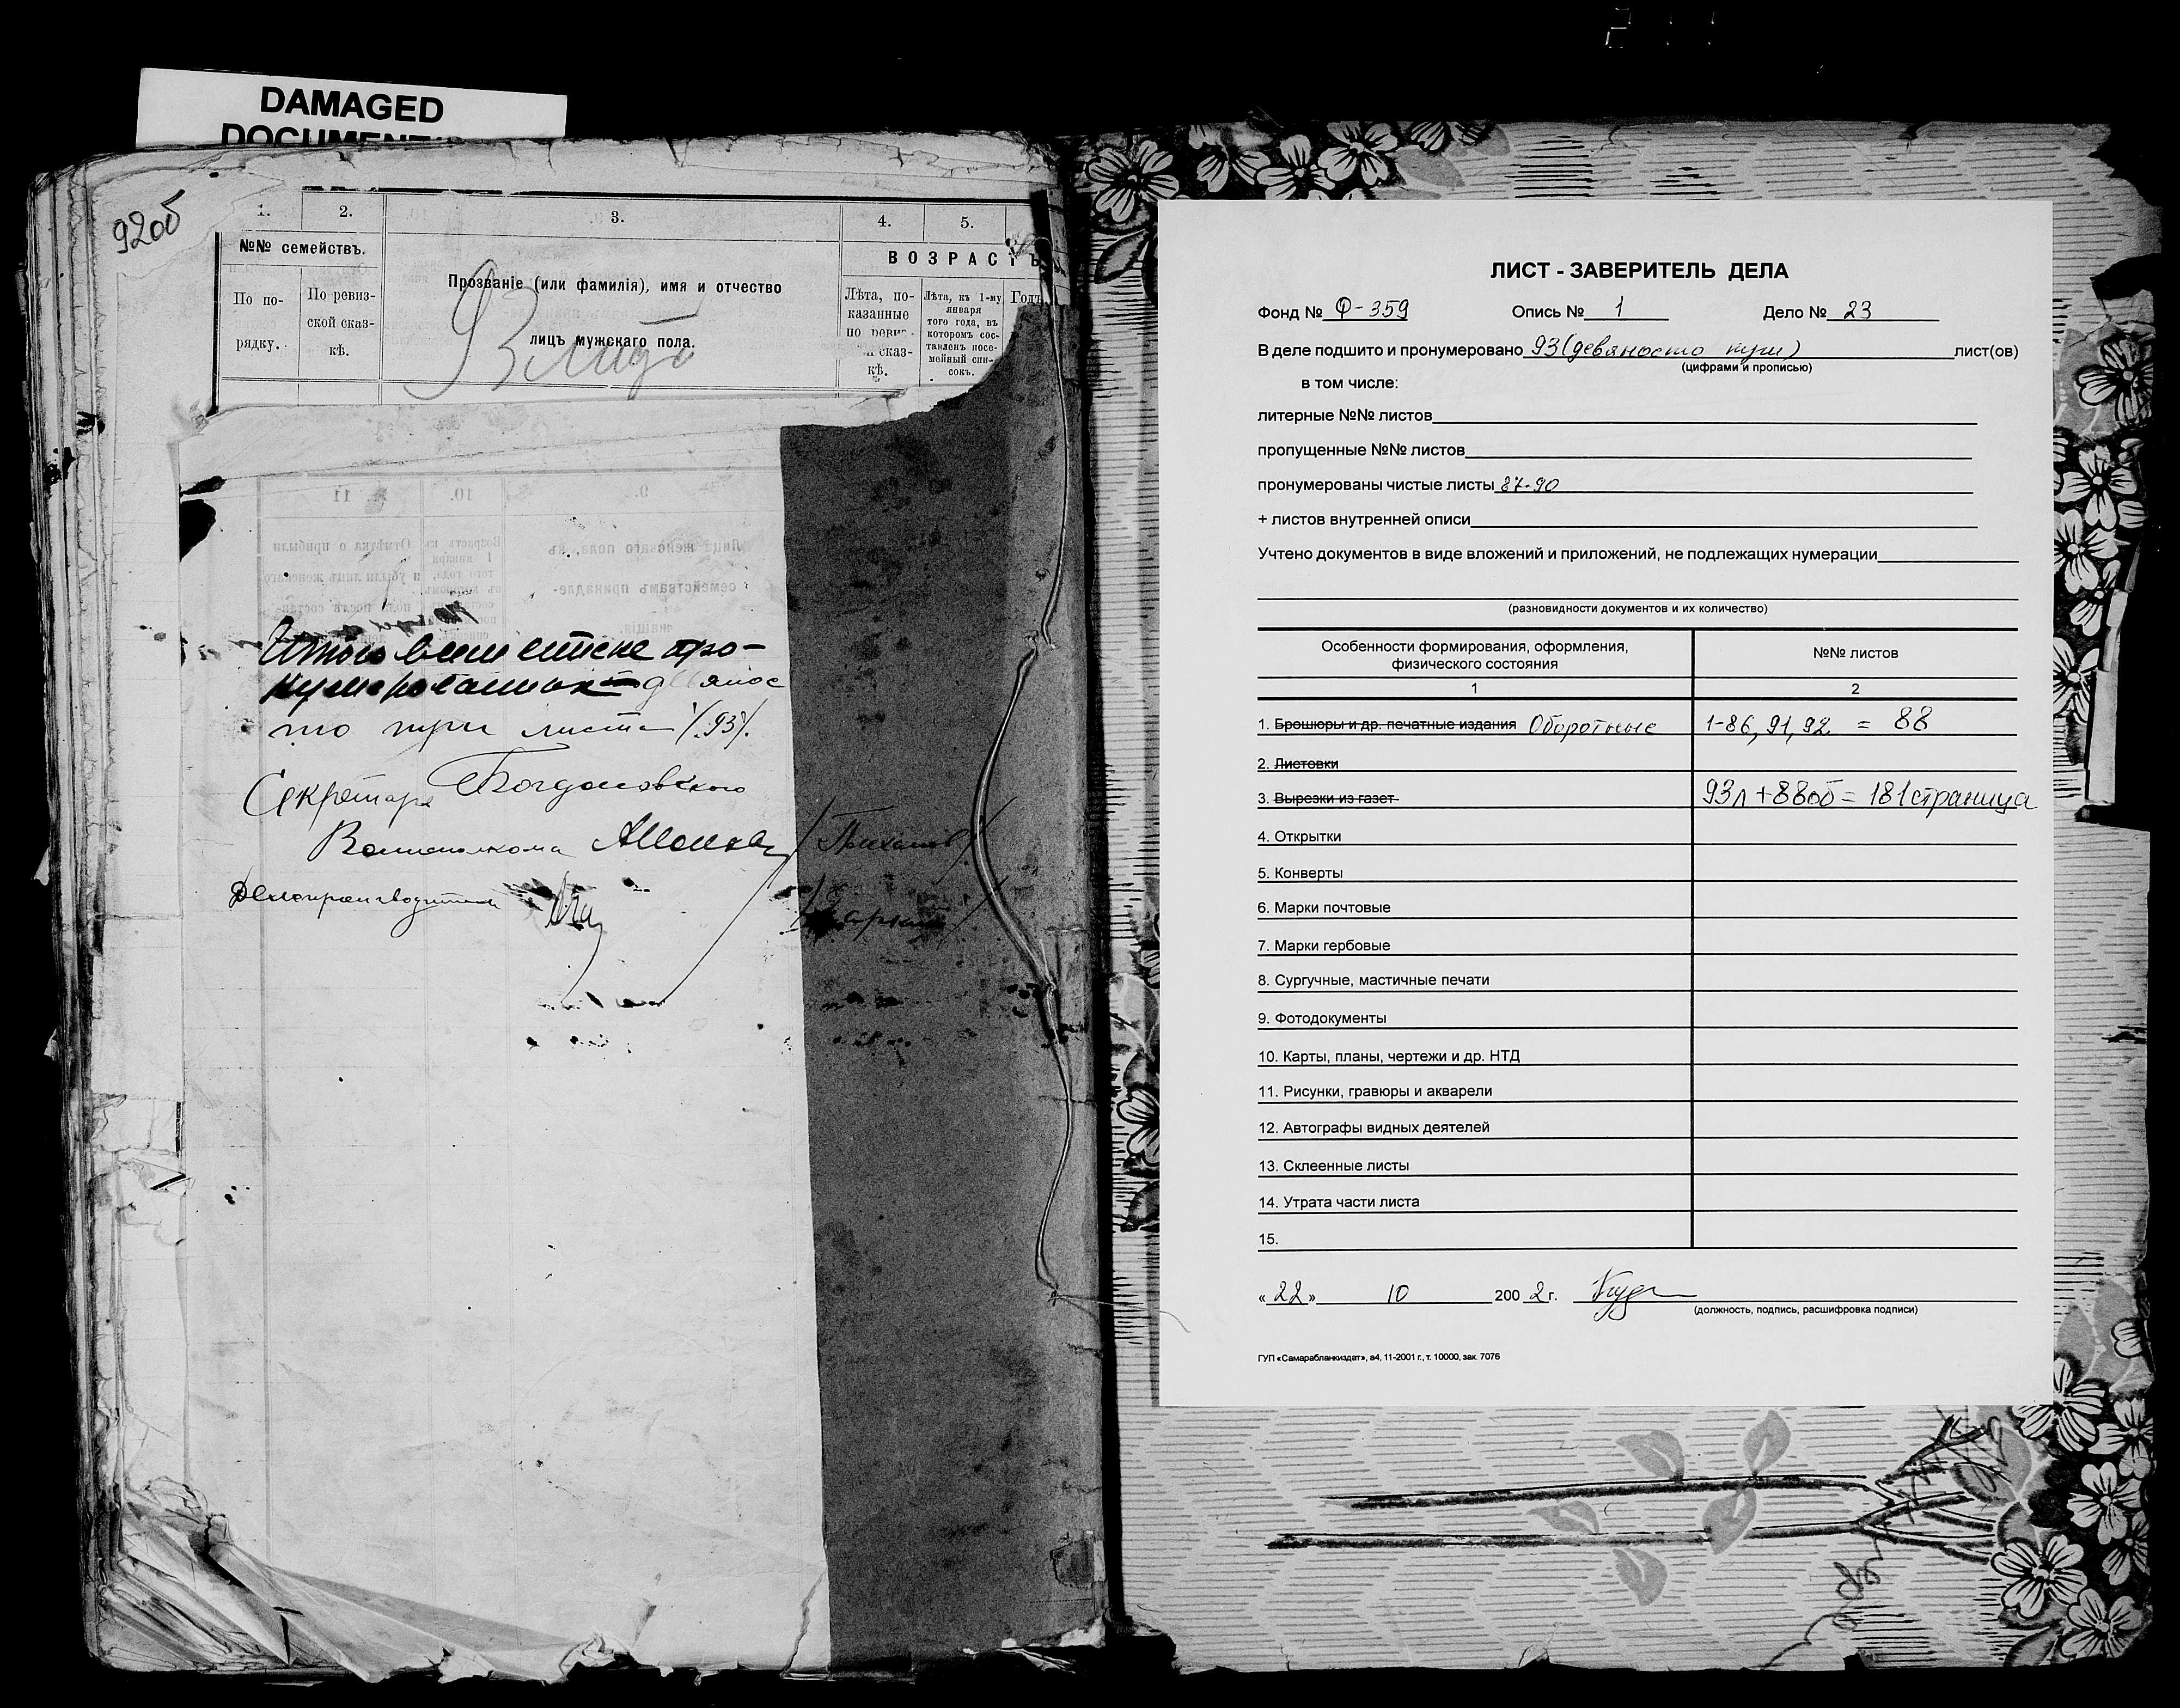 DAMAGED
DOCUMENT
92об
1.
2.
3.
4.
5.
№№ семействъ.
ВОЗРАСТЪ
По по-
рядку.
По ревиз-
ской сказ-
кѣ.
Прозваніе (или фамилія), имя и отчество
лицъ мужскаго пола.
Лѣта, по-
казанные
по ревиз-
сказ-
кѣ.
Лѣта, къ 1-му
января
того года, въ
котором сос-
тавленъ посе-
мейный спи-
сокъ.
93 листа
11
10.
9.
Лица женскаго пола, къ
семействамъ принадле-
жащія.
Итого в сем списке про-
нумеровано девянос
то три листа /93/.
Секретарь Богдановского
Волисполкома
Делопроизводитель
ЛИСТ - ЗАВЕРИТЕЛЬ ДЕЛА
Фонд № Ф-359 Опись № 1 Дело № 23
В деле подшито и пронумеровано 93 (девяносто три) лист(ов)
(цифрами и прописью)
в том числе:
литерные №№ листов
пропущенные №№ листов
пронумерованы чистые листы 87-90
+ листов внутренней описи
Учтено документов в виде вложений и приложений, не подлежащих нумерации
(разновидности документов и их количество)
Особенности формирования, оформления,
физического состояния
№№ листов
1
2
1. Брошюры и др. печатные издания Оборотные 1-86, 91, 92. = 88
2. Листовки
3. Вырезки из газет 93л + 88об = 181 страница
4. Открытки
5. Конверты
6. Марки почтовые
7. Марки гербовые
8. Сургучные, мастичные печати
9. Фотодокументы
10. Карты, планы, чертежи и др. НТД
11. Рисунки, гравюры и акварели
12. Автографы видных деятелей
13. Склеенные листы
14. Утрата части листа
15.
«22» 10 2002 г.
(должность, подпись, расшифровка подписи)
ГУП «Самарабланкиздат», а4, 11-2001 г., т. 10000, зак. 7076